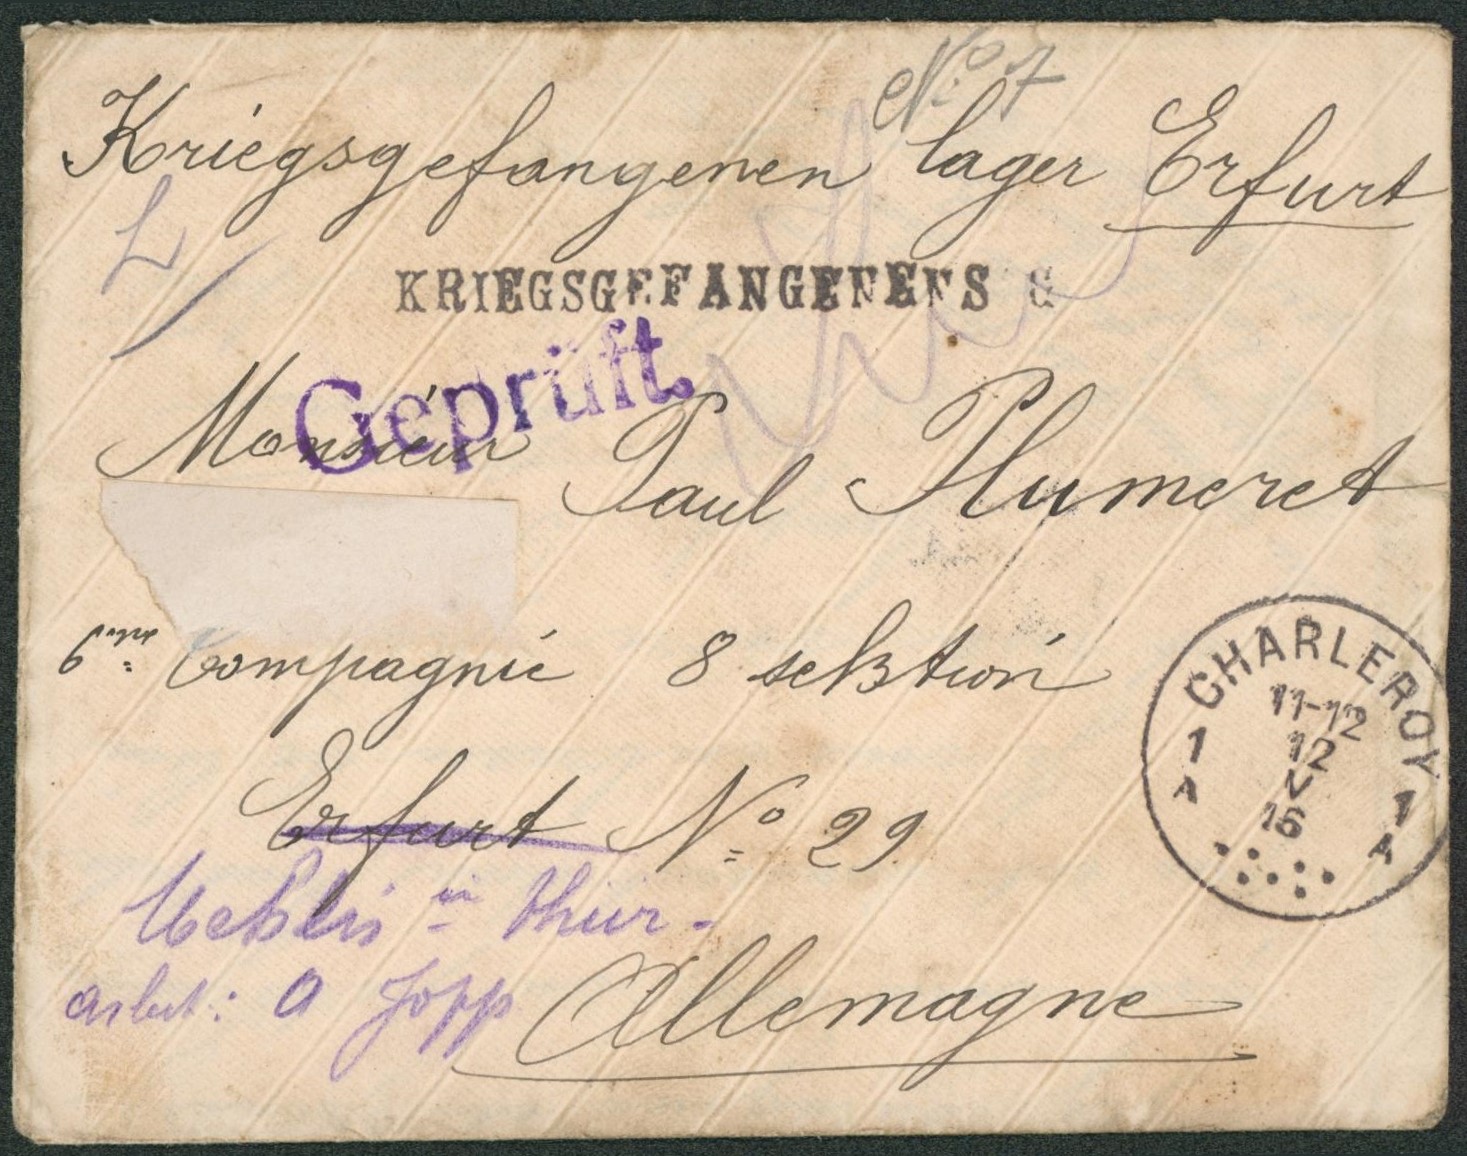 No 7
Kriegsgefangenen lager Erfurt
KRIEGSGEFANGENENS
Geprüft.
Monsieur Paul Plumeret
6me Compagnie 8 sektion
Erfurt No 29
Mehlis in thür.
arbeit: a Jopp
Allemagne
CHARLEROY
11-12
12
V
16
1
A
1
A